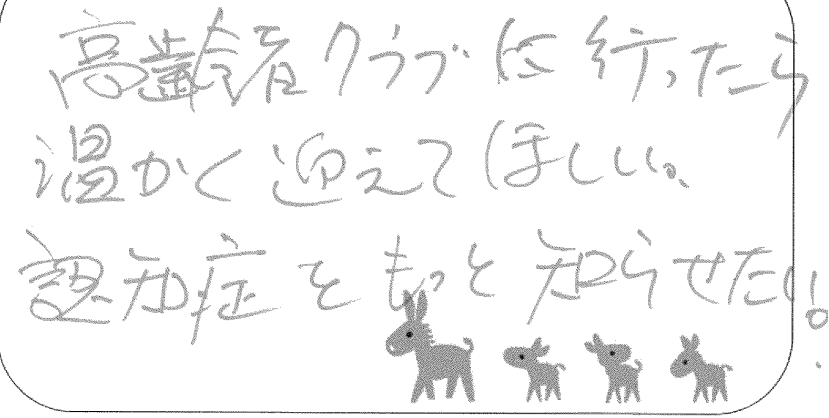 高齢者クラブに行ったら
温かく迎えてほしい。
認知症をもっと知らせたい!